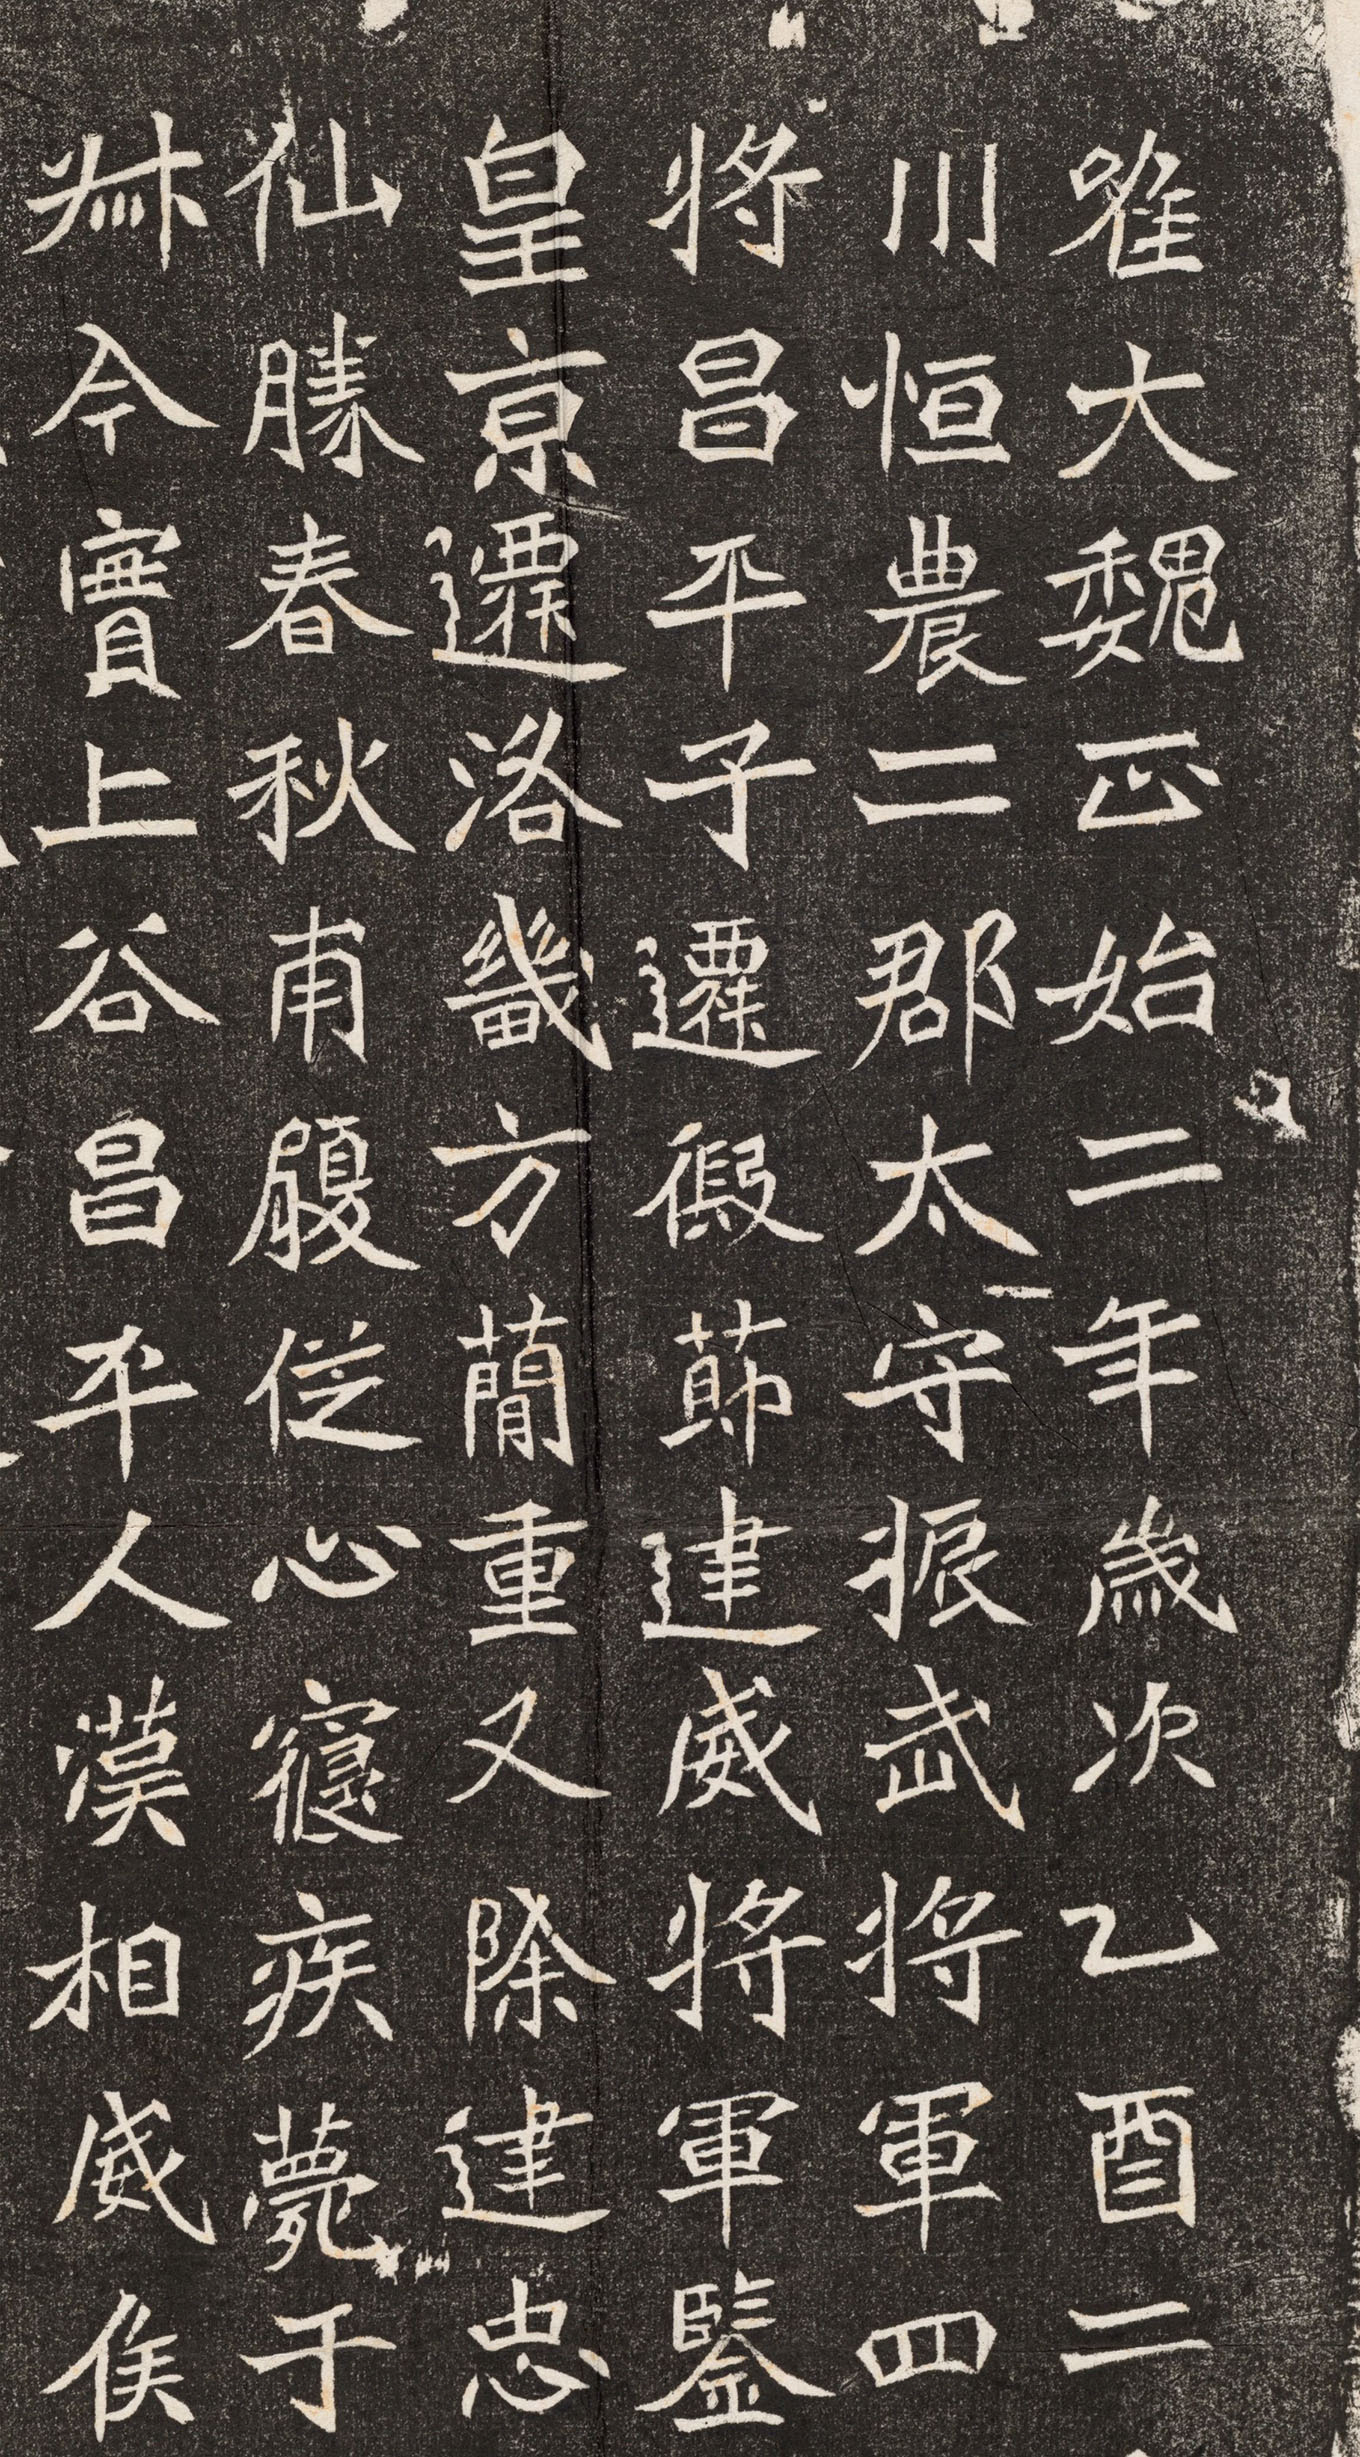 唯大魏正始二年歲次乙酉二
川恒農二郡太守振武將軍四
將昌平子遷假節建威將軍鑒
皇京遷洛畿方簡重又除建忠
仙勝春秋甫履從心寢疾薨于
叔今實上谷昌平人漢相威侯